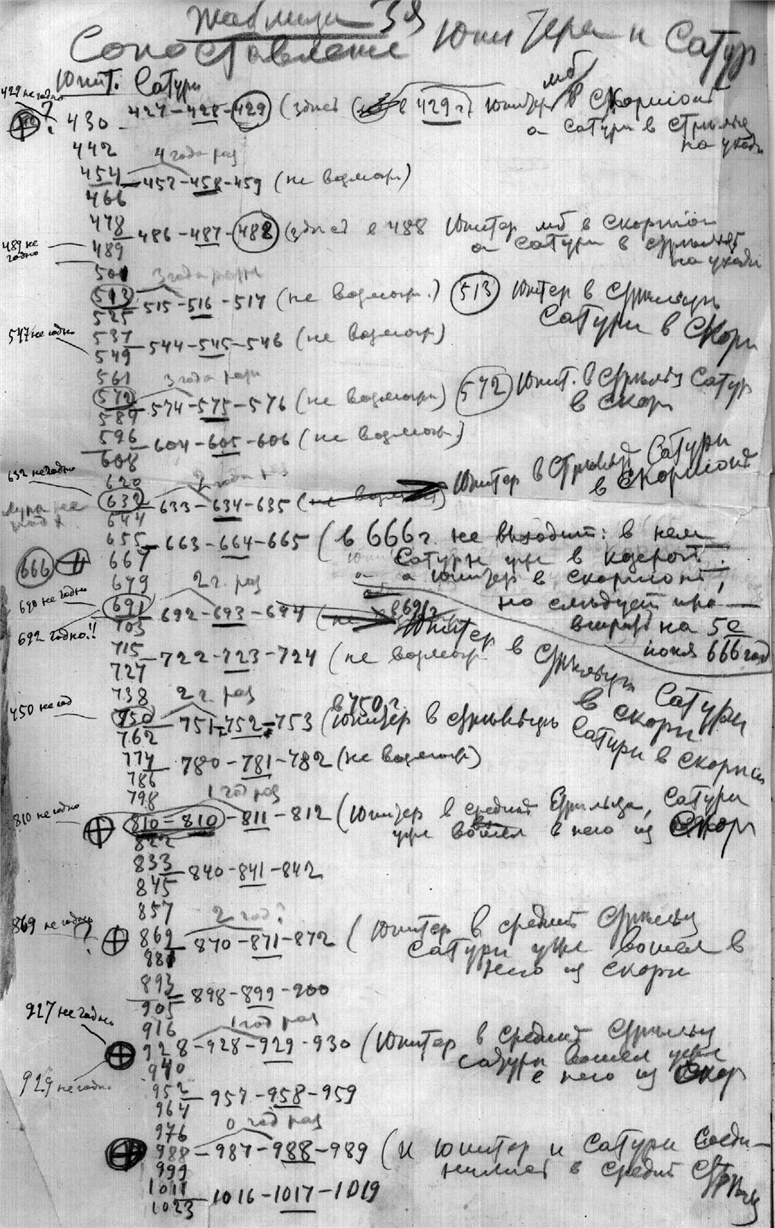 Таблица 3я
Сопоставление Юпитера и Сатур
Юпит. Сатурн
429 не годно
430 - 427-428-429 (здесь в 429 г. Юпитер мб в Скорпионе
а Сатурн в Стрельце
на уходе
442
4 года раз
454 - 457-458-459 (не возможн.)
466
478 - 486-487-488 (здесь в 488 Юпитер мб в Скорпион
а Сатурн в Стрельце
на уходе
489 не годно
489
501
3 года разн
513 - 515-516-517 (не возможн.) 513 Юпитер в Стрельце
Сатурн в Скорп
525
537 - 544-545-546 (не возможн)
547 не годно
549
561
3 года разн
572 - 574-575-576 (не возможн) 572 Юпит. в Стрельц Сатур
в Скор
584
596 - 604-605-606 (не возможн.)
608
620
632 не годно
2 года раз
632 - 633-634-635 (не возможн) Юпитер в Стрельце Сатурн
в Скорпионе
644
655 - 663-664-665 (в 666 г. не выходит: в нем
Сатурн уже в Козероге
а Юпитер в Скорпионе,
666
667
679
но следует про-
верить на 5е
июня 666 год
690 не годно
2 г. раз
691 - 692-693-694 в 691 г. Юпитер в Стрельце Сатурн
в Скорп
692 годно!!
703
715 - 722-723-724 (не возможн.
727
738
2 г. раз
450 не год
750 - 751-752-753 (в 750 г. Юпитер в Стрельце Сатурн в Скорпи
762
774 - 780-781-782 (не возможн)
786
798
1 год раз
810 не годно
810=810-811-812 (Юпитер в средине Стрельца, Сатурн
уже вошел в него из Скор
822
833 - 840-841-842
845
857
2 год?
869 не годно
?
869 - 870-871-872 (Юпитер в средине Стрельц
Сатурн уже вошел в
него из Скорп
881
893 - 898-899-900
905
927 не годно
916
1 год раз
928-928-929-930 (Юпитер в средине Стрельц
Сатурн вошел уже
в него из Скор
929 не годно
940
952 - 957-958-959
964
976
0 год раз
988 - 987-988-989 (И Юпитер и Сатурн Соеди-
нились в средине Стрельц
999
1011 - 1016-1017-1019
1023